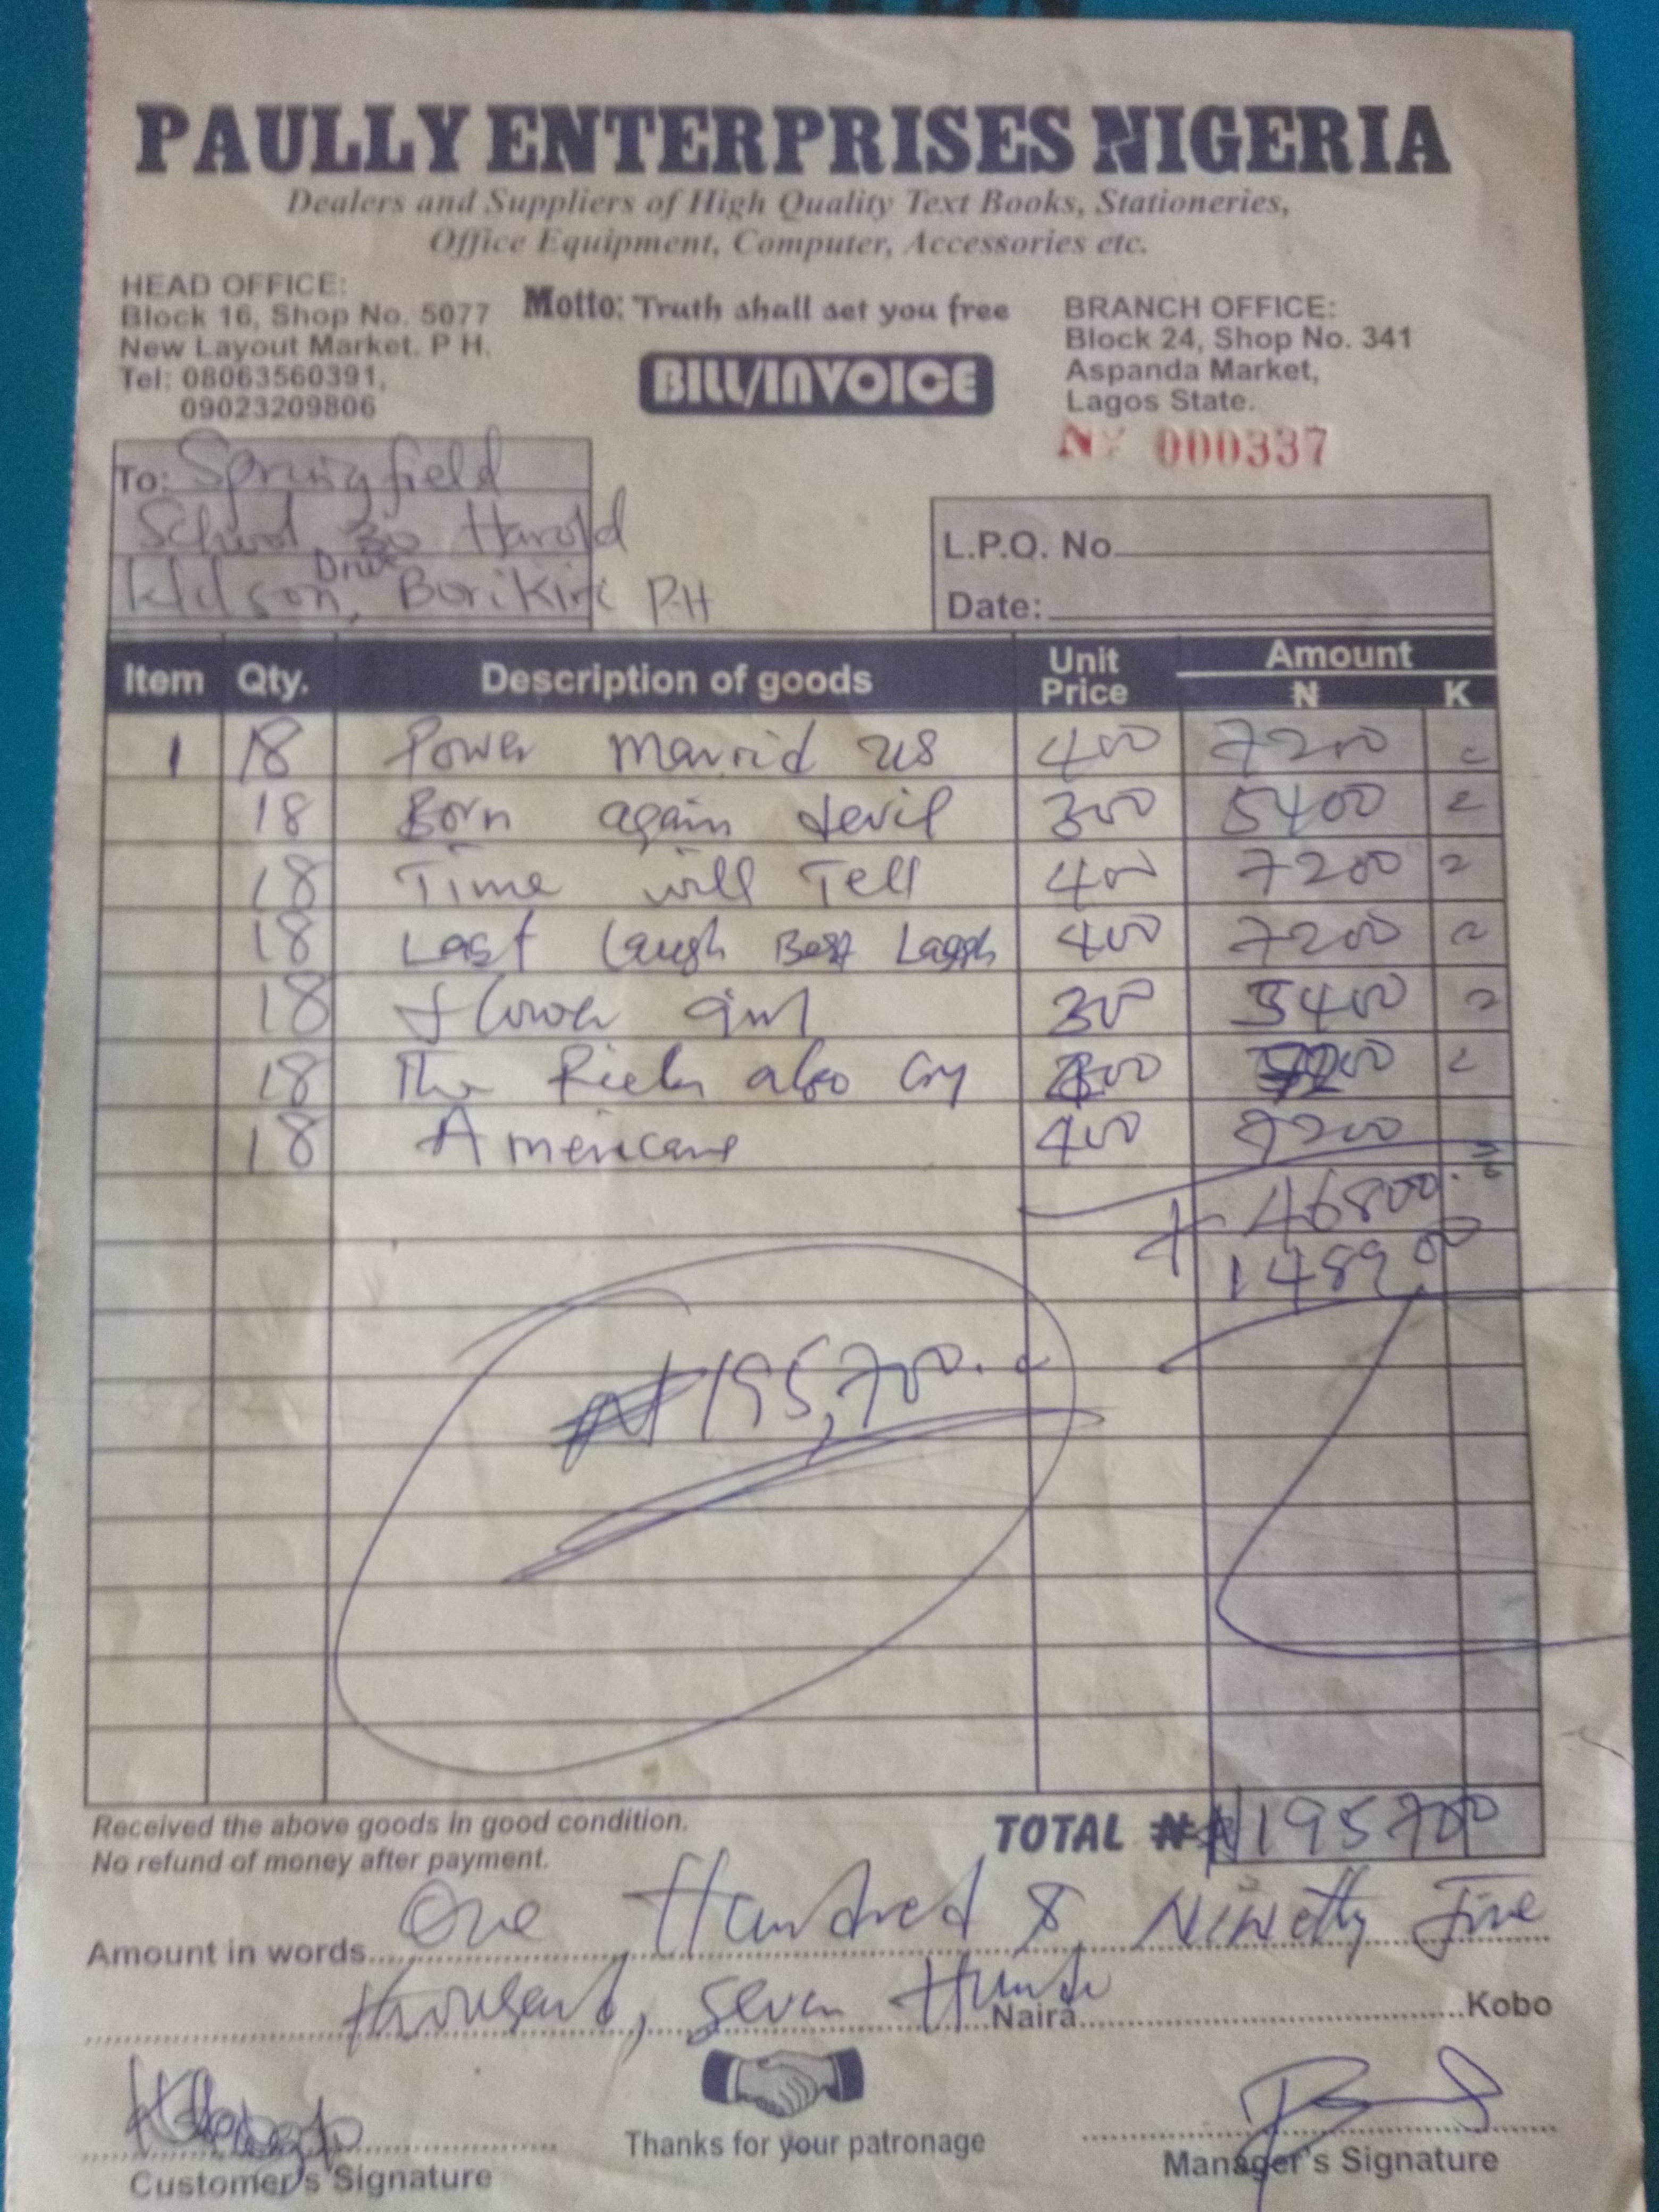 PAULLY ENTERPRISES NIGERIA
Dealers and Suppliers of High Quality Text Books, Stationeries,
Office Equipment, Computer, Accessories etc.
HEAD OFFICE:
Block 16, Shop No. 5077
New Layout Market. P H.
Tel: 08063560391,
09023209806
Motto: Truth shall set you free
BILL/INVOICE
BRANCH OFFICE:
Block 24, Shop No. 341
Aspanda Market,
Lagos State.
Nº 000337
To: Springfield
School, 30 Harold
Drive
Borikiri P.H
L.P.O. No
Date:
Item Qty. Description of goods Unit Price Amount ₦ K
1 18 Power Marrid us 400 7200
18 Born again devil 300 5400
18 Time will Tell 400 7200
18 Last laugh Best Laugh 400 7200
18 flower girl 300 5400
18 The Rich also Cry
18 Americana 400 7200
46800
148900
₦195,700
TOTAL ₦ ₦195700
Received the above goods in good condition.
No refund of money after payment.
Amount in words One Hundred & Ninety Five
thousand, seven Naira Kobo
Customer's Signature
Thanks for your patronage
Manager's Signature